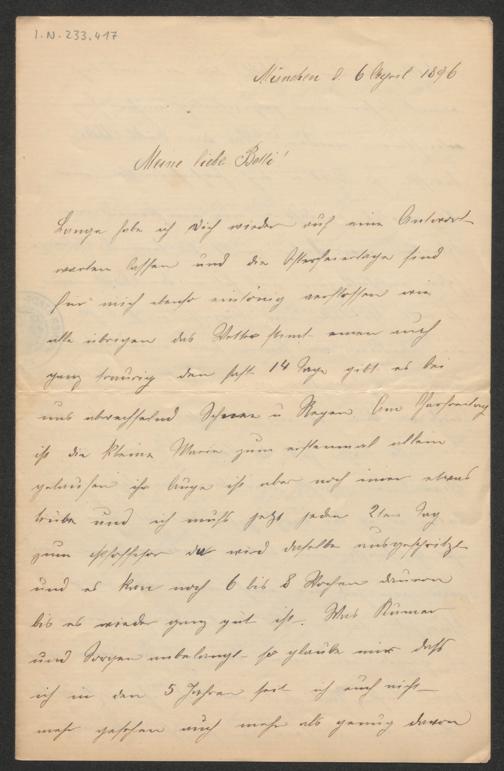 I.N. 233.417
München d. 6 April 1896
Meine liebe Betti!
Lange habe ich Dich wieder auf eine Antwort
warten lassen und die Osterfeiertage sind
für mich ebenso eintönig verflossen wie
alle übrigen das Wetter stimt einen auch
ganz traurig den fast 14 Tage gibt es bei
uns abwechselnd Schnee u Regen Am Charfreitag
ist die kleine Marie zum erstenmal allein
gelaufen ihr Auge ist aber noch imer etwas
trübe und ich muß jetzt jeden 2ten Tag
zum Professor da wird dasselbe ausgespritzt
und es kan noch 6 bis 8 Wochen dauern
bis es wieder ganz gut ist. Was Kumer
und Sorgen anbelangt so glaube mir daß
ich in den 5 Jahren seit ich euch nicht
mehr gesehen auch mehr als genug davon